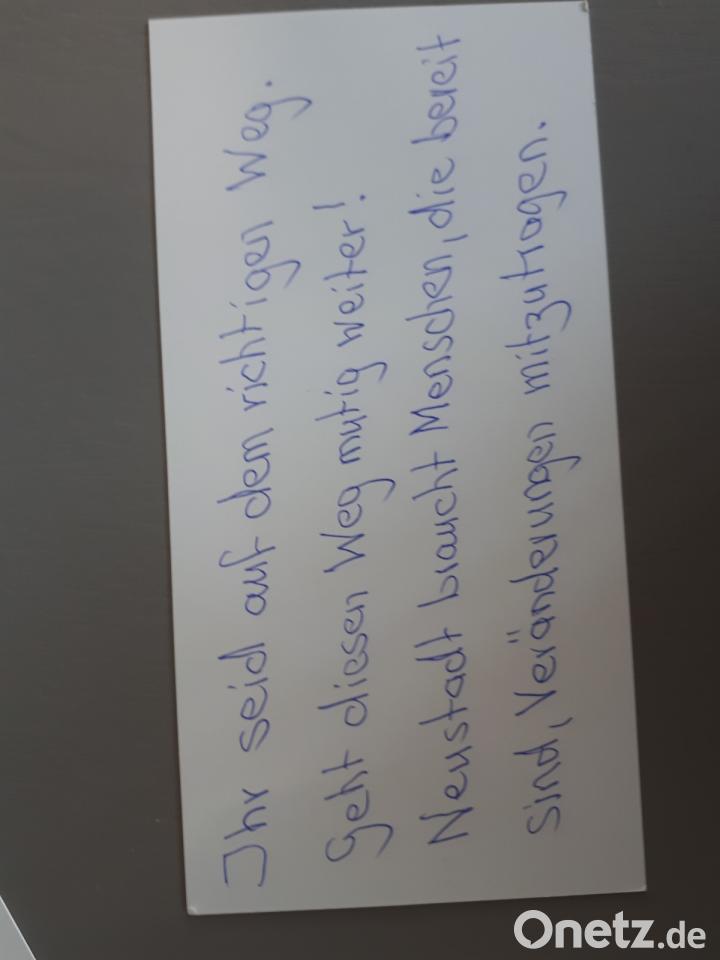 Ihr seid auf dem richtigen Weg.
Geht diesen Weg mutig weiter!
Neustadt braucht Menschen, die bereit
sind, Veränderungen mitzutragen.
Onetz.de